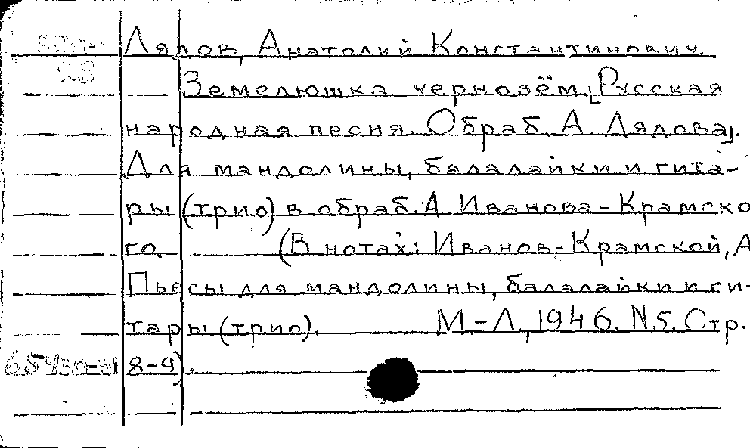 Лядов, Анатолий Константинович.
28
Земелюшка чернозём. [Русская
народная песня. Обраб. А. Лядова].
Для мандолины, балалайки и гита-
ры (трио) в обраб. А. Иванова-Крамско
го. (В нотах: Иванов-Крамской, А
Пьесы для мандолины, балалайки и ги-
тары (трио). М-Л, 1946. N5. Стр.
8-9).